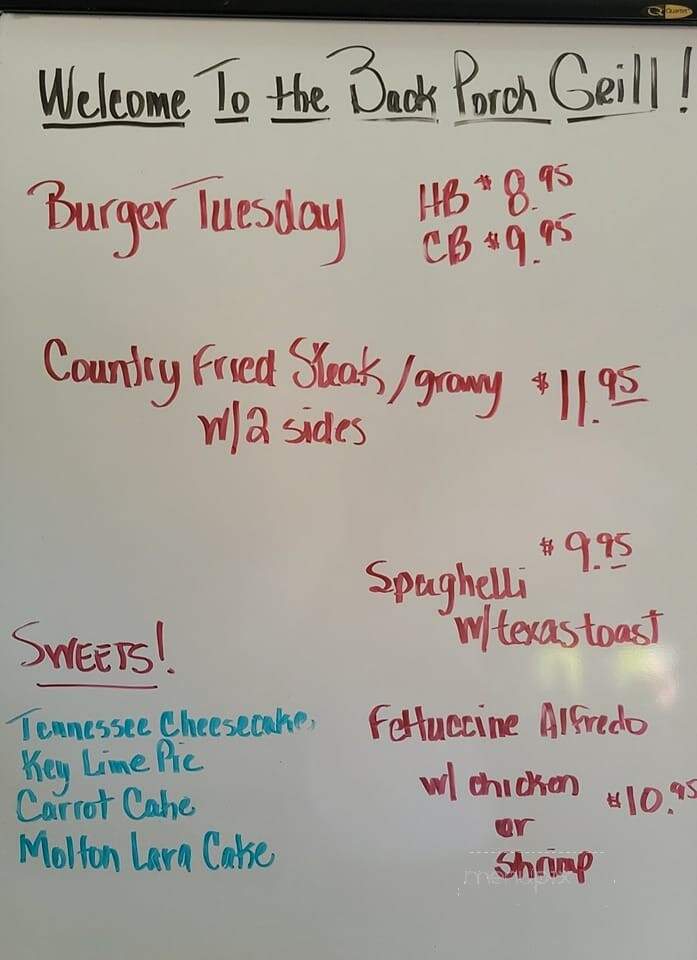 Quartet
Welcome To the Back Porch Grill!
Burger Tuesday
HB $8.95
CB $9.95
Country Fried Steak/gravy $11.95
w/2 sides
$9.95
Spaghetti
w/texas toast
SWEETS!
Tennessee Cheesecake
Key Lime Pie
Carrot Cake
Molton Lava Cake
Fettuccine Alfredo
w/ chicken $10.95
or
shrimp
menupix